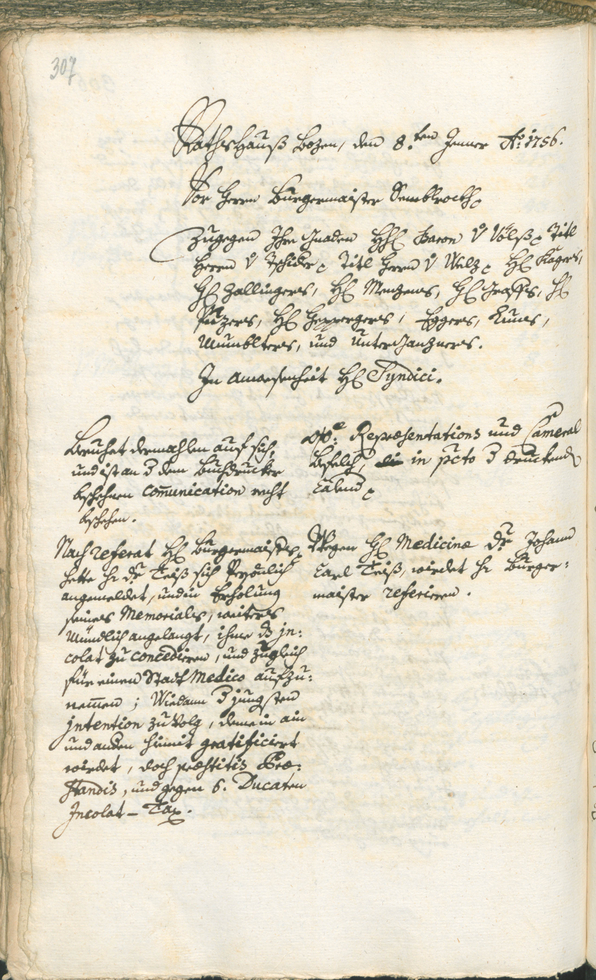 307
Rathshauß Bozen, den 8.ten Jenner Ao. 1756.
Vor Herrn Burgermaister
Zugegen Ihro Gnaden HH. Baron v. Völß, Titl
Herrn v. Titl Herrn v. Walz, HH.
HH. Zallingers, HH. Menzens, HH. Graffs, HH.
HH. Eggers, Kuns,
Wumblters, und Unterganzners.
In Anwesenheit HH. Syndici.
Beruhet dermahlen auf sich,
und ist an dem Buchdrucker
beschehnen communication recht
beschehen.
Repræsentations und Cameral
Befelch, in pcto d. druckend
Calend.
Nach referat HH. Burgermaisters
hette Hr. Dr. Teiß sich Persönlich
angemeldet, und in Erholung
seines Memorials, weiters
Mündlich angelangt, ihme d. in:
colat zu concedieren, und zugleich
für einen Statt Medico aufzu:
nemmen; Wie dann d. jungsten
intention zu Volg, deme in ain
und anden hiemit gratificiert
wirdet, doch præstitis Præ:
standis, und gegen 6. Ducaten
Incolat-Tax.
Wegen HH. Medicinæ Dr. Johann
Carl Teiß, wirdet Hr. Burger:
maister referieren.